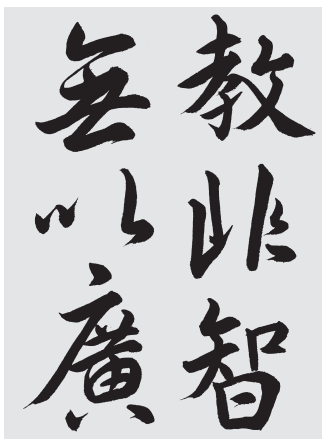 教非智
無以廣